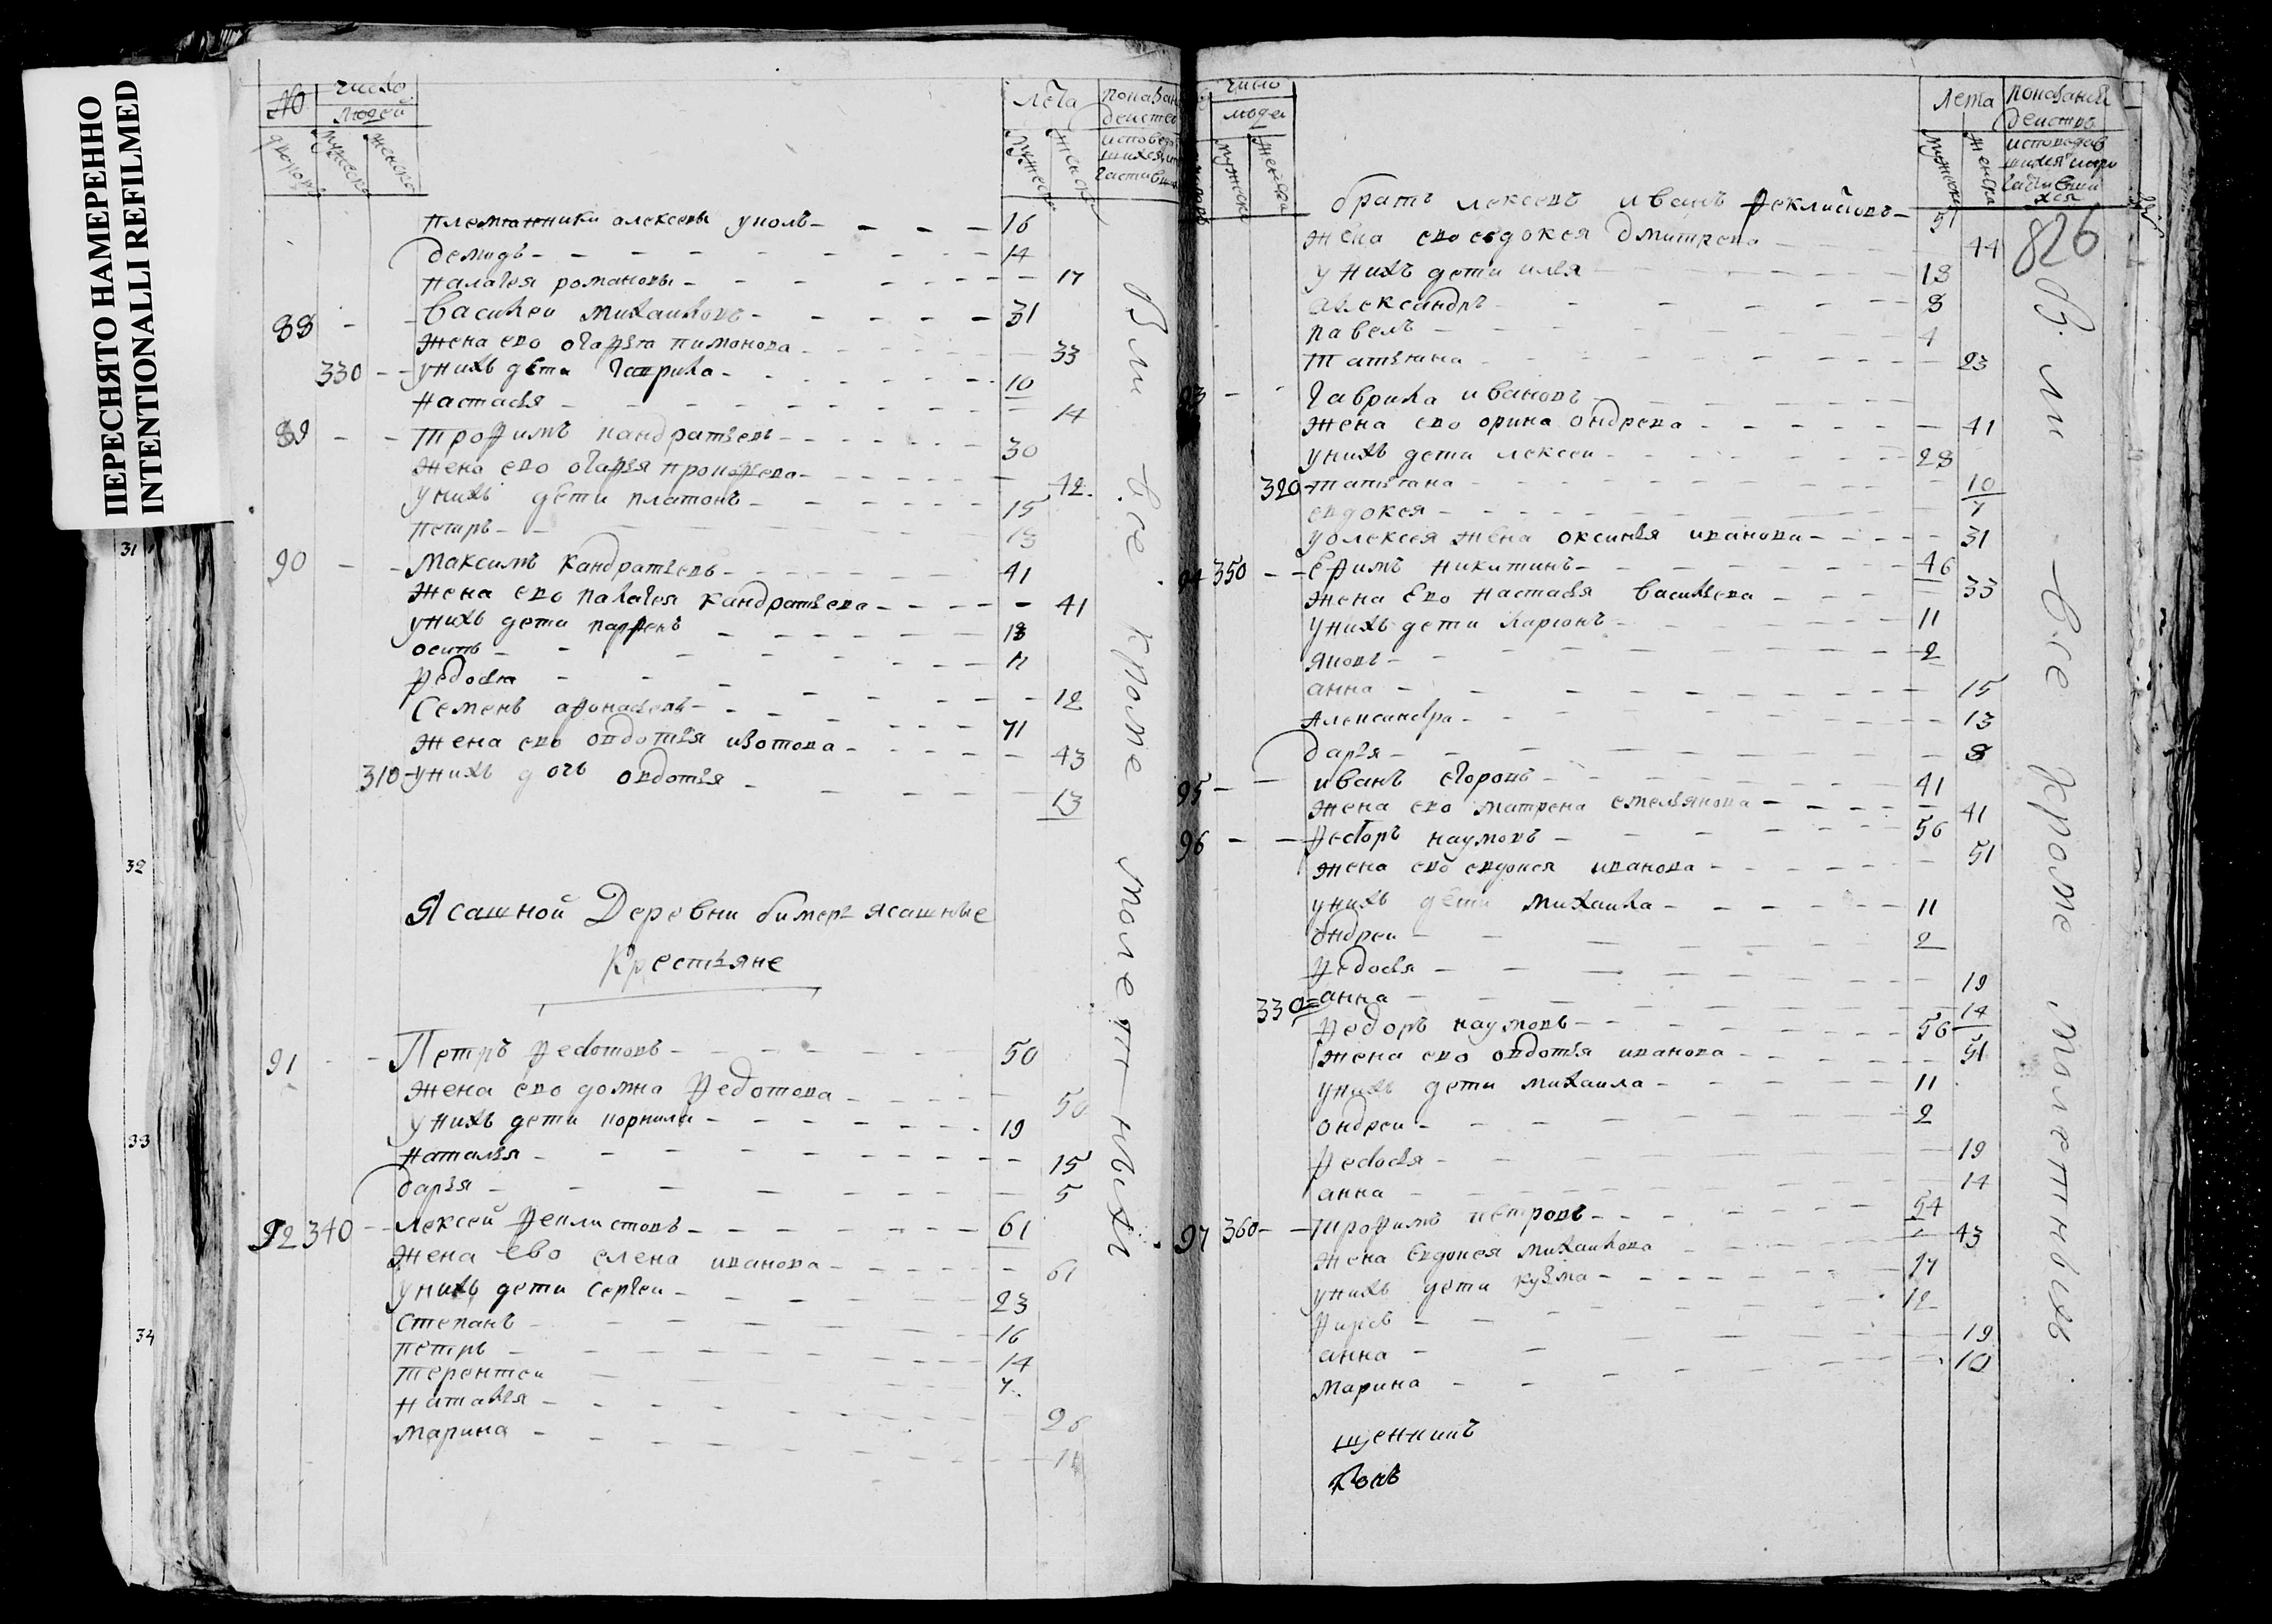 ПЕРЕСНЯТО НАМЕРЕННО
INTENTIONALLI REFILMED
31
32
33
34
№ число людей лета
дворовъ мужеска женска мужеска женска
племянники алексевы 16
демидъ 14
палагея романовы 17
88 василеи михаиловъ 31
жена ево огафья пиманова 33
330 у нихъ дети гаврила 10
настасья 14
89 трофимъ кандратьевъ 30
жена ево огафья 42
у нихъ дети платонъ 15
петръ 13
90 максимъ кандратьевъ 41
жена ево палагея кандратьева 41
у нихъ дети парфенъ 18
осипъ 11
федосья 12
семенъ афонасьевъ 71
жена ево овдотья изотова 43
310 у нихъ дочь овдотья 13
Ясашной Деревни бимерь ясашные
Крестьяне
91 Петръ федотовъ 50
жена ево домна федотова 50
у нихъ дети корнила 19
наталья 15
дарья 5
92 340 лексей феклистовъ 61
жена ево елена иванова 61
у нихъ дети сергеи 23
степанъ 16
петръ 14
терентеи 7
наталья 26
марина
были все кроме молетнихъ
число людеи лета
мужеска женска мужеска женска
показания действъ исповедав
826
братъ лексеевъ иванъ феклистовъ 51
жена ево евдокея дмитрева 44
у нихъ дети илья 18
александръ 8
павелъ 4
татьяна 23
93 гаврила ивановъ
жена ево орина ондрева 41
у нихъ дети лексеи 28
320 татьяна 10
евдокея 7
у олексея жена оксинья иванова 31
94 350 ефимъ никитинъ 46
жена ево настасья васильева 33
у нихъ дети ларионъ 11
яковъ 2
анна 15
александра 13
дарья 8
95 иванъ егоровъ 41
жена ево матрена емельянова 41
96 федоръ наумовъ 56
жена ево евдокея иванова 51
у нихъ дети михаила 11
ондреи 2
федосья 19
330 анна 14
федоръ наумовъ 56
жена ево овдотья иванова 51
у нихъ дети михаила 11
ондреи 2
федосья 19
анна 14
97 360 трофимъ петровъ 54
жена евдокея михаилова 43
у нихъ дети кузма 17
фирсъ 12
анна 19
марина 10
щенникъ
были все кроме молетнихъ